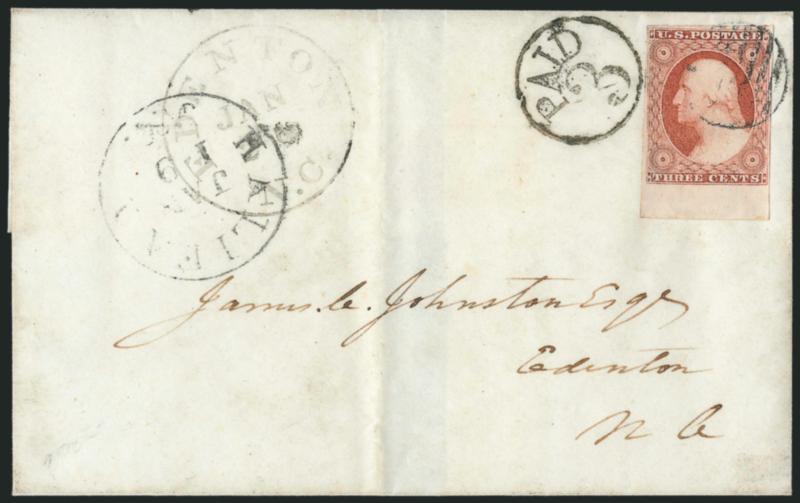 EDENTON
JAN
N.C.
HALIFAX
PAID
3
U.S. POSTAGE
THREE CENTS
James. C. Johnston Esqr
Edenton
N C